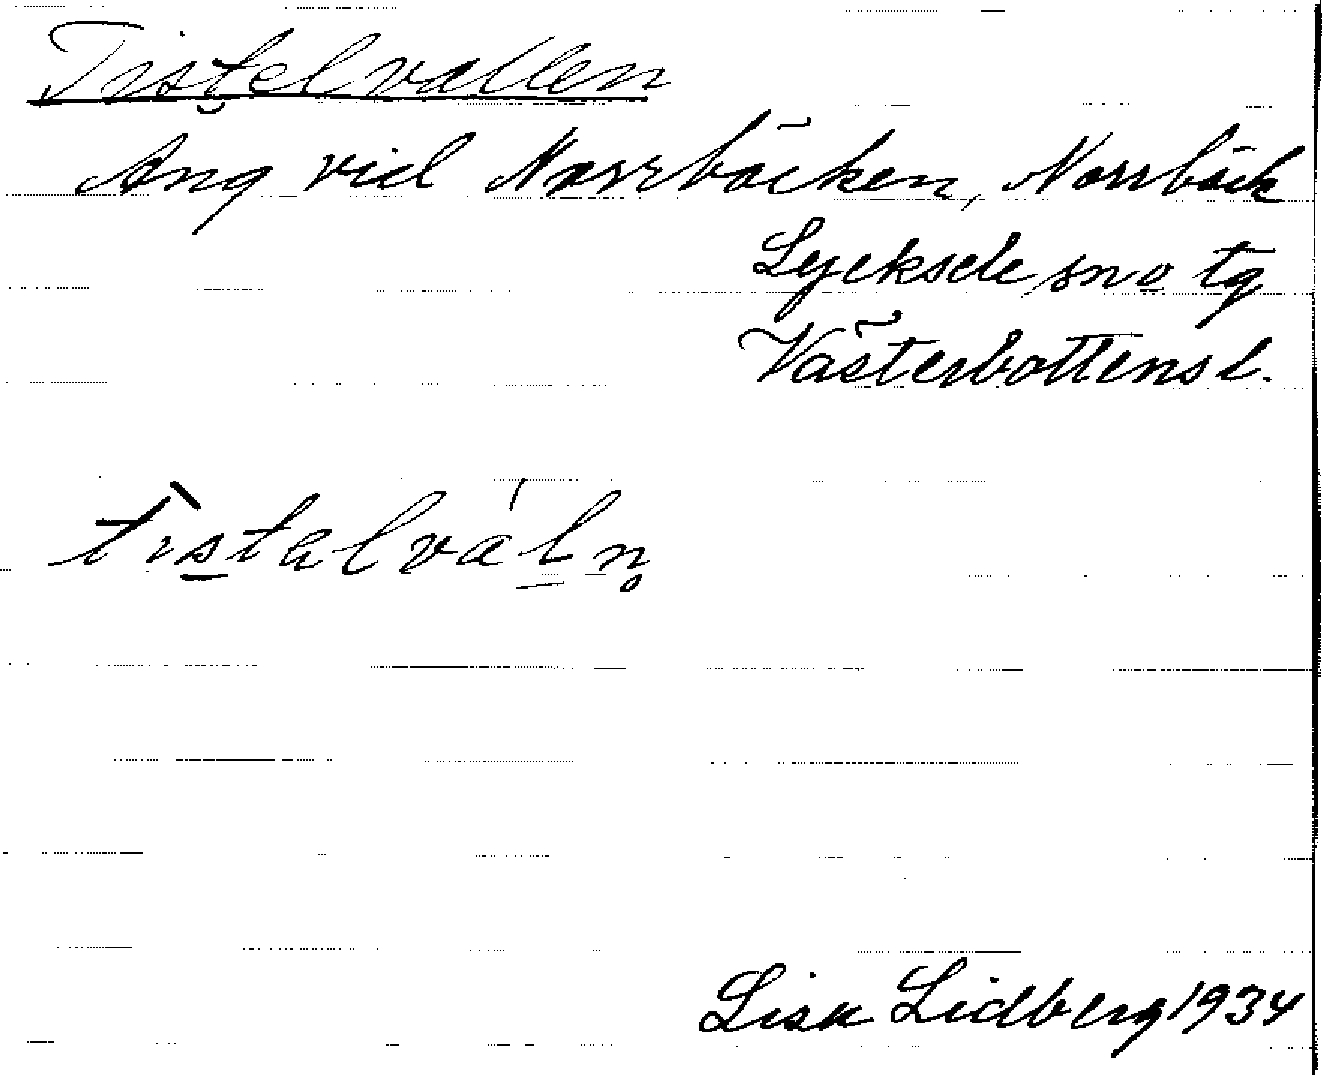 Tistelvallen
Äng vid Norrbäcken, Norrbäck
Lycksele sno tg
Västerbottens l.
tìstəlvá̱ln̥
Lisa Lidberg 1934